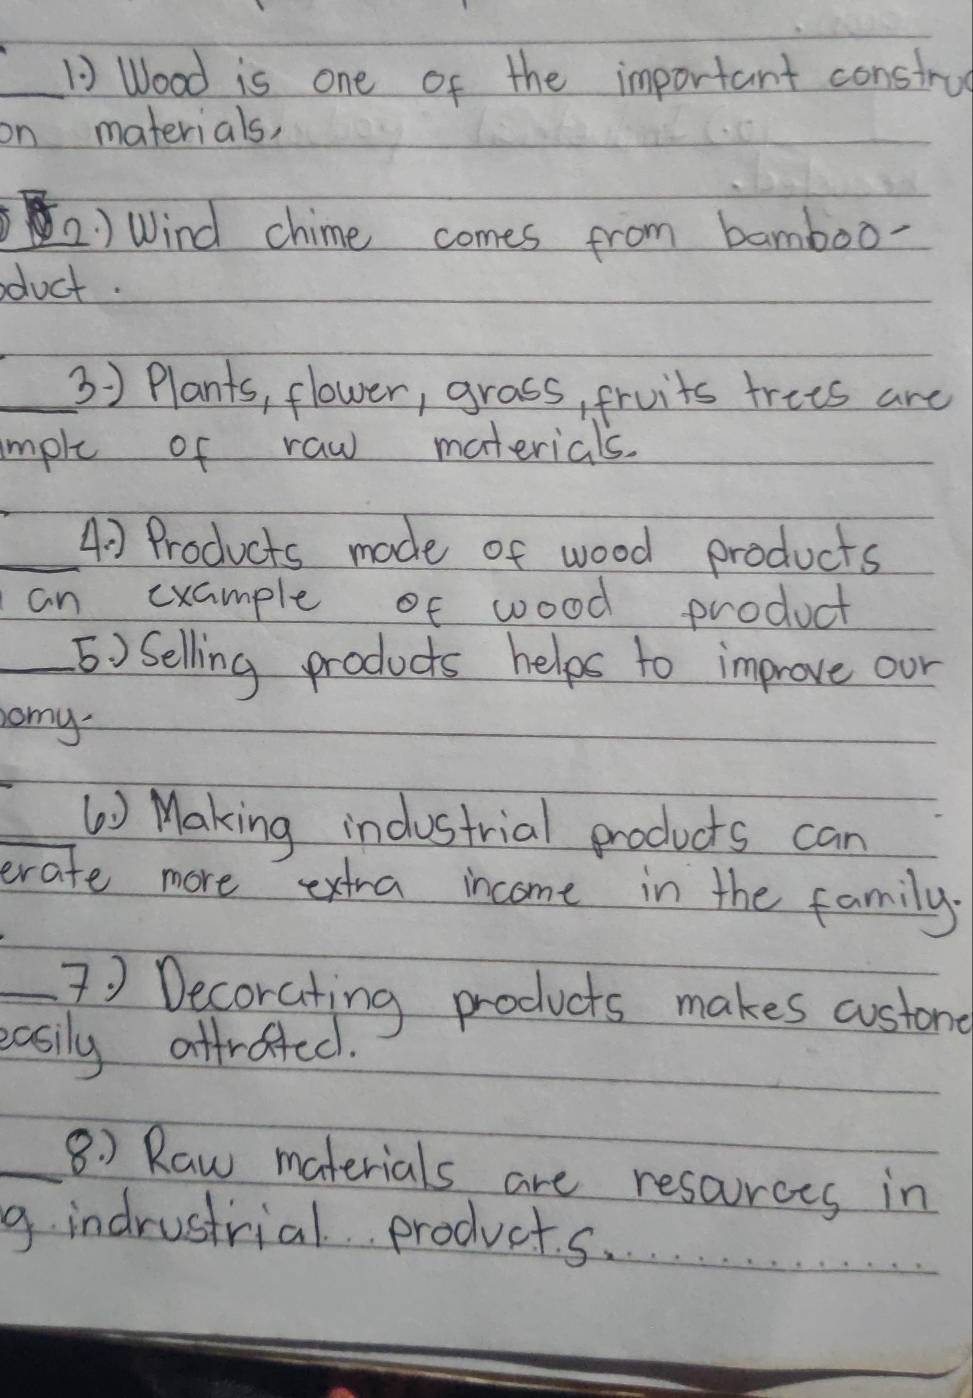 1.) Wood is one of the important construc
on materials.
2.) Wind chime comes from bamboo-
oduct.
3.) Plants, flower, grass, fruits trees are
ample of raw materials.
4.) Products made of wood products
an example of wood product
5.) Selling products helps to improve our
nomy.
6.) Making industrial products can
erate more extra income in the family.
7.) Decorating products makes custome
easily attrated.
8.) Raw materials are resources in
g indrustrial products.